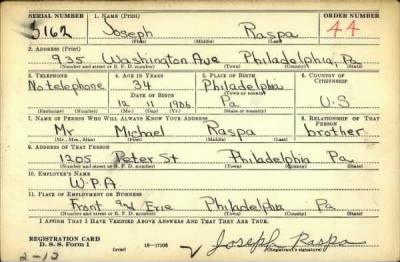 SERIAL NUMBER 1. NAME (Print) ORDER NUMBER
3162 Joseph Raspa 44
(First) (Middle) (Last)
2. ADDRESS (Print)
935 Washington Ave Philadelphia, Pa
(Number and street or R. F. D. number) (Town) (County) (State)
3. TELEPHONE 4. AGE IN YEARS 5. PLACE OF BIRTH 6. COUNTRY OF CITIZENSHIP
No telephone 34 Philadelphia
DATE OF BIRTH (Town or county)
12 11 1906 Pa U.S
(Exchange) (Number) (Mo.) (Day) (Yr.) (State or country)
7. NAME OF PERSON WHO WILL ALWAYS KNOW YOUR ADDRESS 8. RELATIONSHIP OF THAT PERSON
Mr. Michael Raspa brother
(Mr., Mrs., Miss) (First) (Middle) (Last)
9. ADDRESS OF THAT PERSON
1205 Peter St Philadelphia Pa
(Number and street or R. F. D. number) (Town) (County) (State)
10. EMPLOYER'S NAME
W.P.A
11. PLACE OF EMPLOYMENT OR BUSINESS
Front and Erie Philadelphia Pa
(Number and street or R. F. D. number) (Town) (County) (State)
I AFFIRM THAT I HAVE VERIFIED ABOVE ANSWERS AND THAT THEY ARE TRUE.
REGISTRATION CARD
D. S. S. Form 1 (over) 16—17105 Joseph Raspa
(Registrant's signature)
2-13